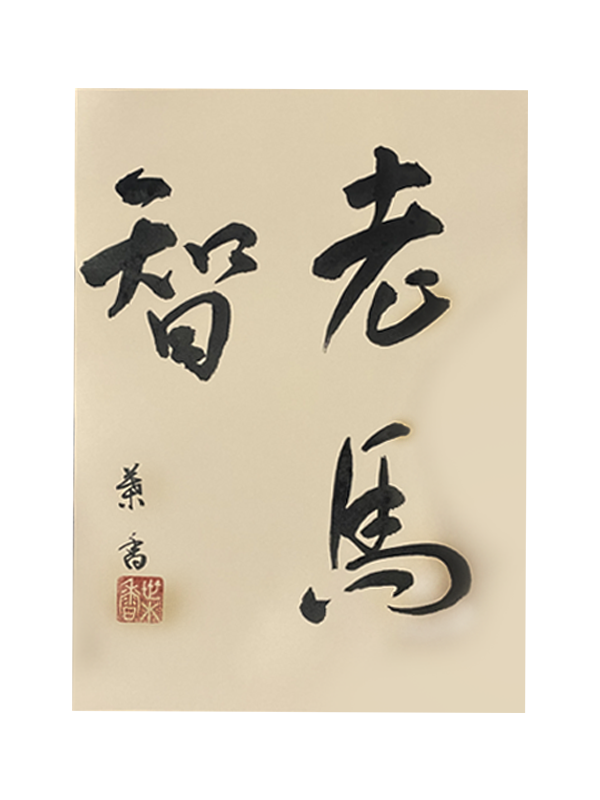 老馬
智
葉香